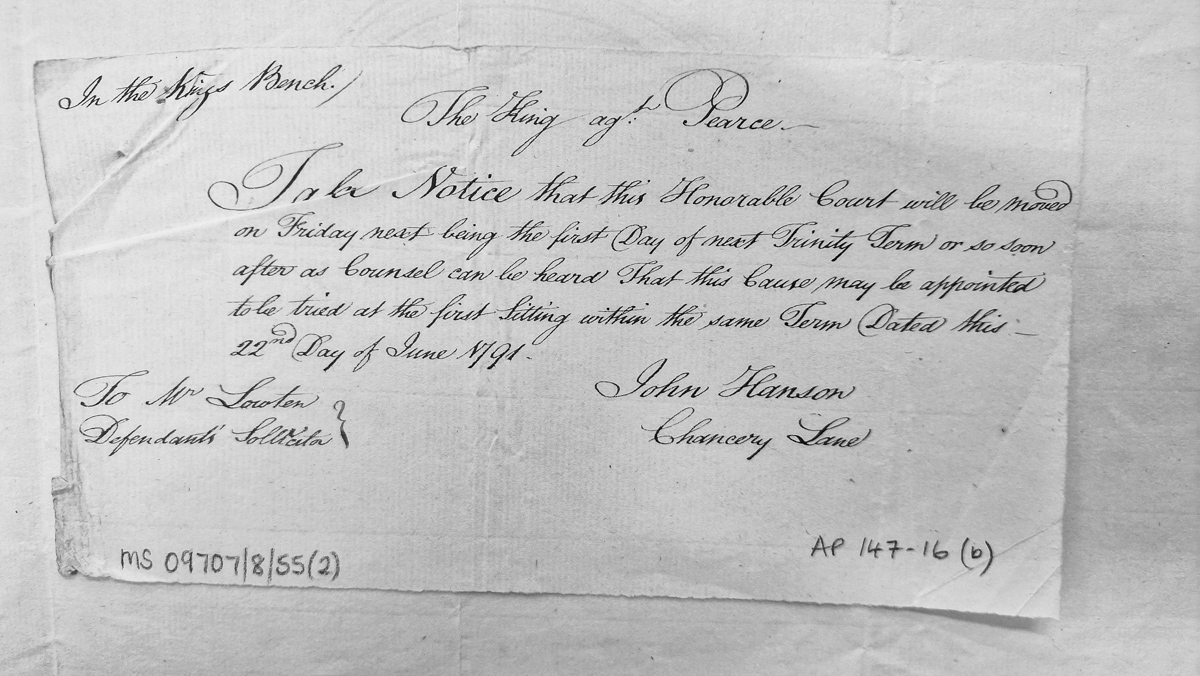 In the Kings Bench.
The King agt. Pearce
Take Notice that this Honorable Court will be moved
on Friday next being the first Day of next Trinity Term or so soon
after as Counsel can be heard That this Cause may be appointed
to be tried at the first Sitting within the same Term Dated this
22nd Day of June 1791.
To Mr Lowten
Defendants' Sollicitor
John Hanson
Chancery Lane
MS 09707/8/55(2)
AP 147-16 (b)